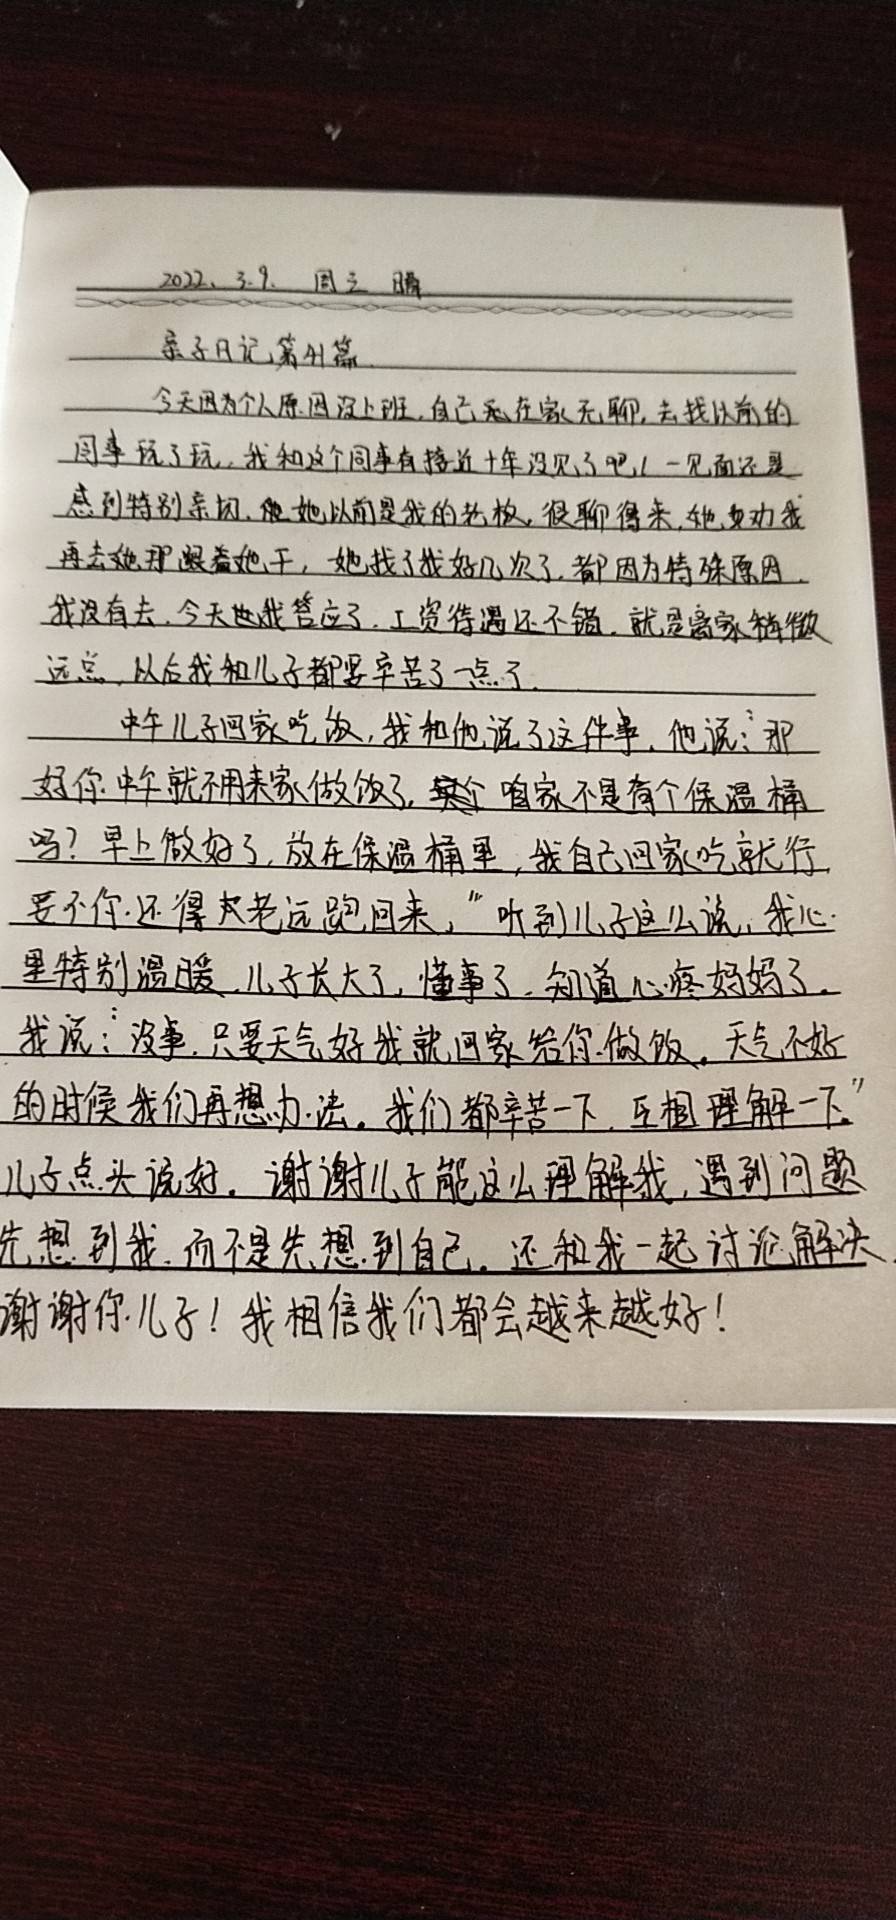 2022. 3.9. 周三 晴
亲子日记第41篇
今天因为个人原因没上班,自己在家无聊,去找以前的
同事玩了玩,我和这个同事有接近十年没见了吧!一见面还是
感到特别亲切,她以前是我的老板,很聊得来,她劝我
再去她那跟着她干,她找了我好几次了,都因为特殊原因,
我没有去,今天我答应了,工资待遇还不错,就是离家稍微
远点,以后我和儿子都要辛苦了一点了
中午儿子回家吃饭,我和他说了这件事,他说:“那
好你中午就不用来家做饭了,咱家不是有个保温桶
吗?早上做好了,放在保温桶里,我自己回家吃就行,
要不你还得大老远跑回来,”听到儿子这么说,我心
里特别温暖,儿子长大了,懂事了,知道心疼妈妈了。
我说:“没事,只要天气好我就回家给你做饭。天气不好
的时候我们再想办法。我们都辛苦一下,互相理解一下。”
儿子点头说好。谢谢儿子能这么理解我,遇到问题
先想到我,而不是先想到自己。还和我一起讨论解决,
谢谢你儿子!我相信我们都会越来越好!